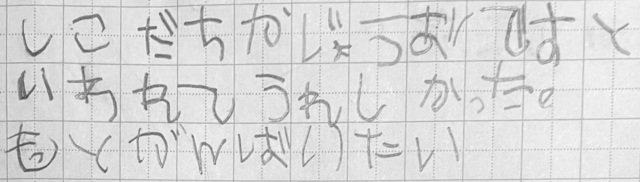 しこだちがじょうおずですと
いわれてうれしかった。
もっとがんばりたい